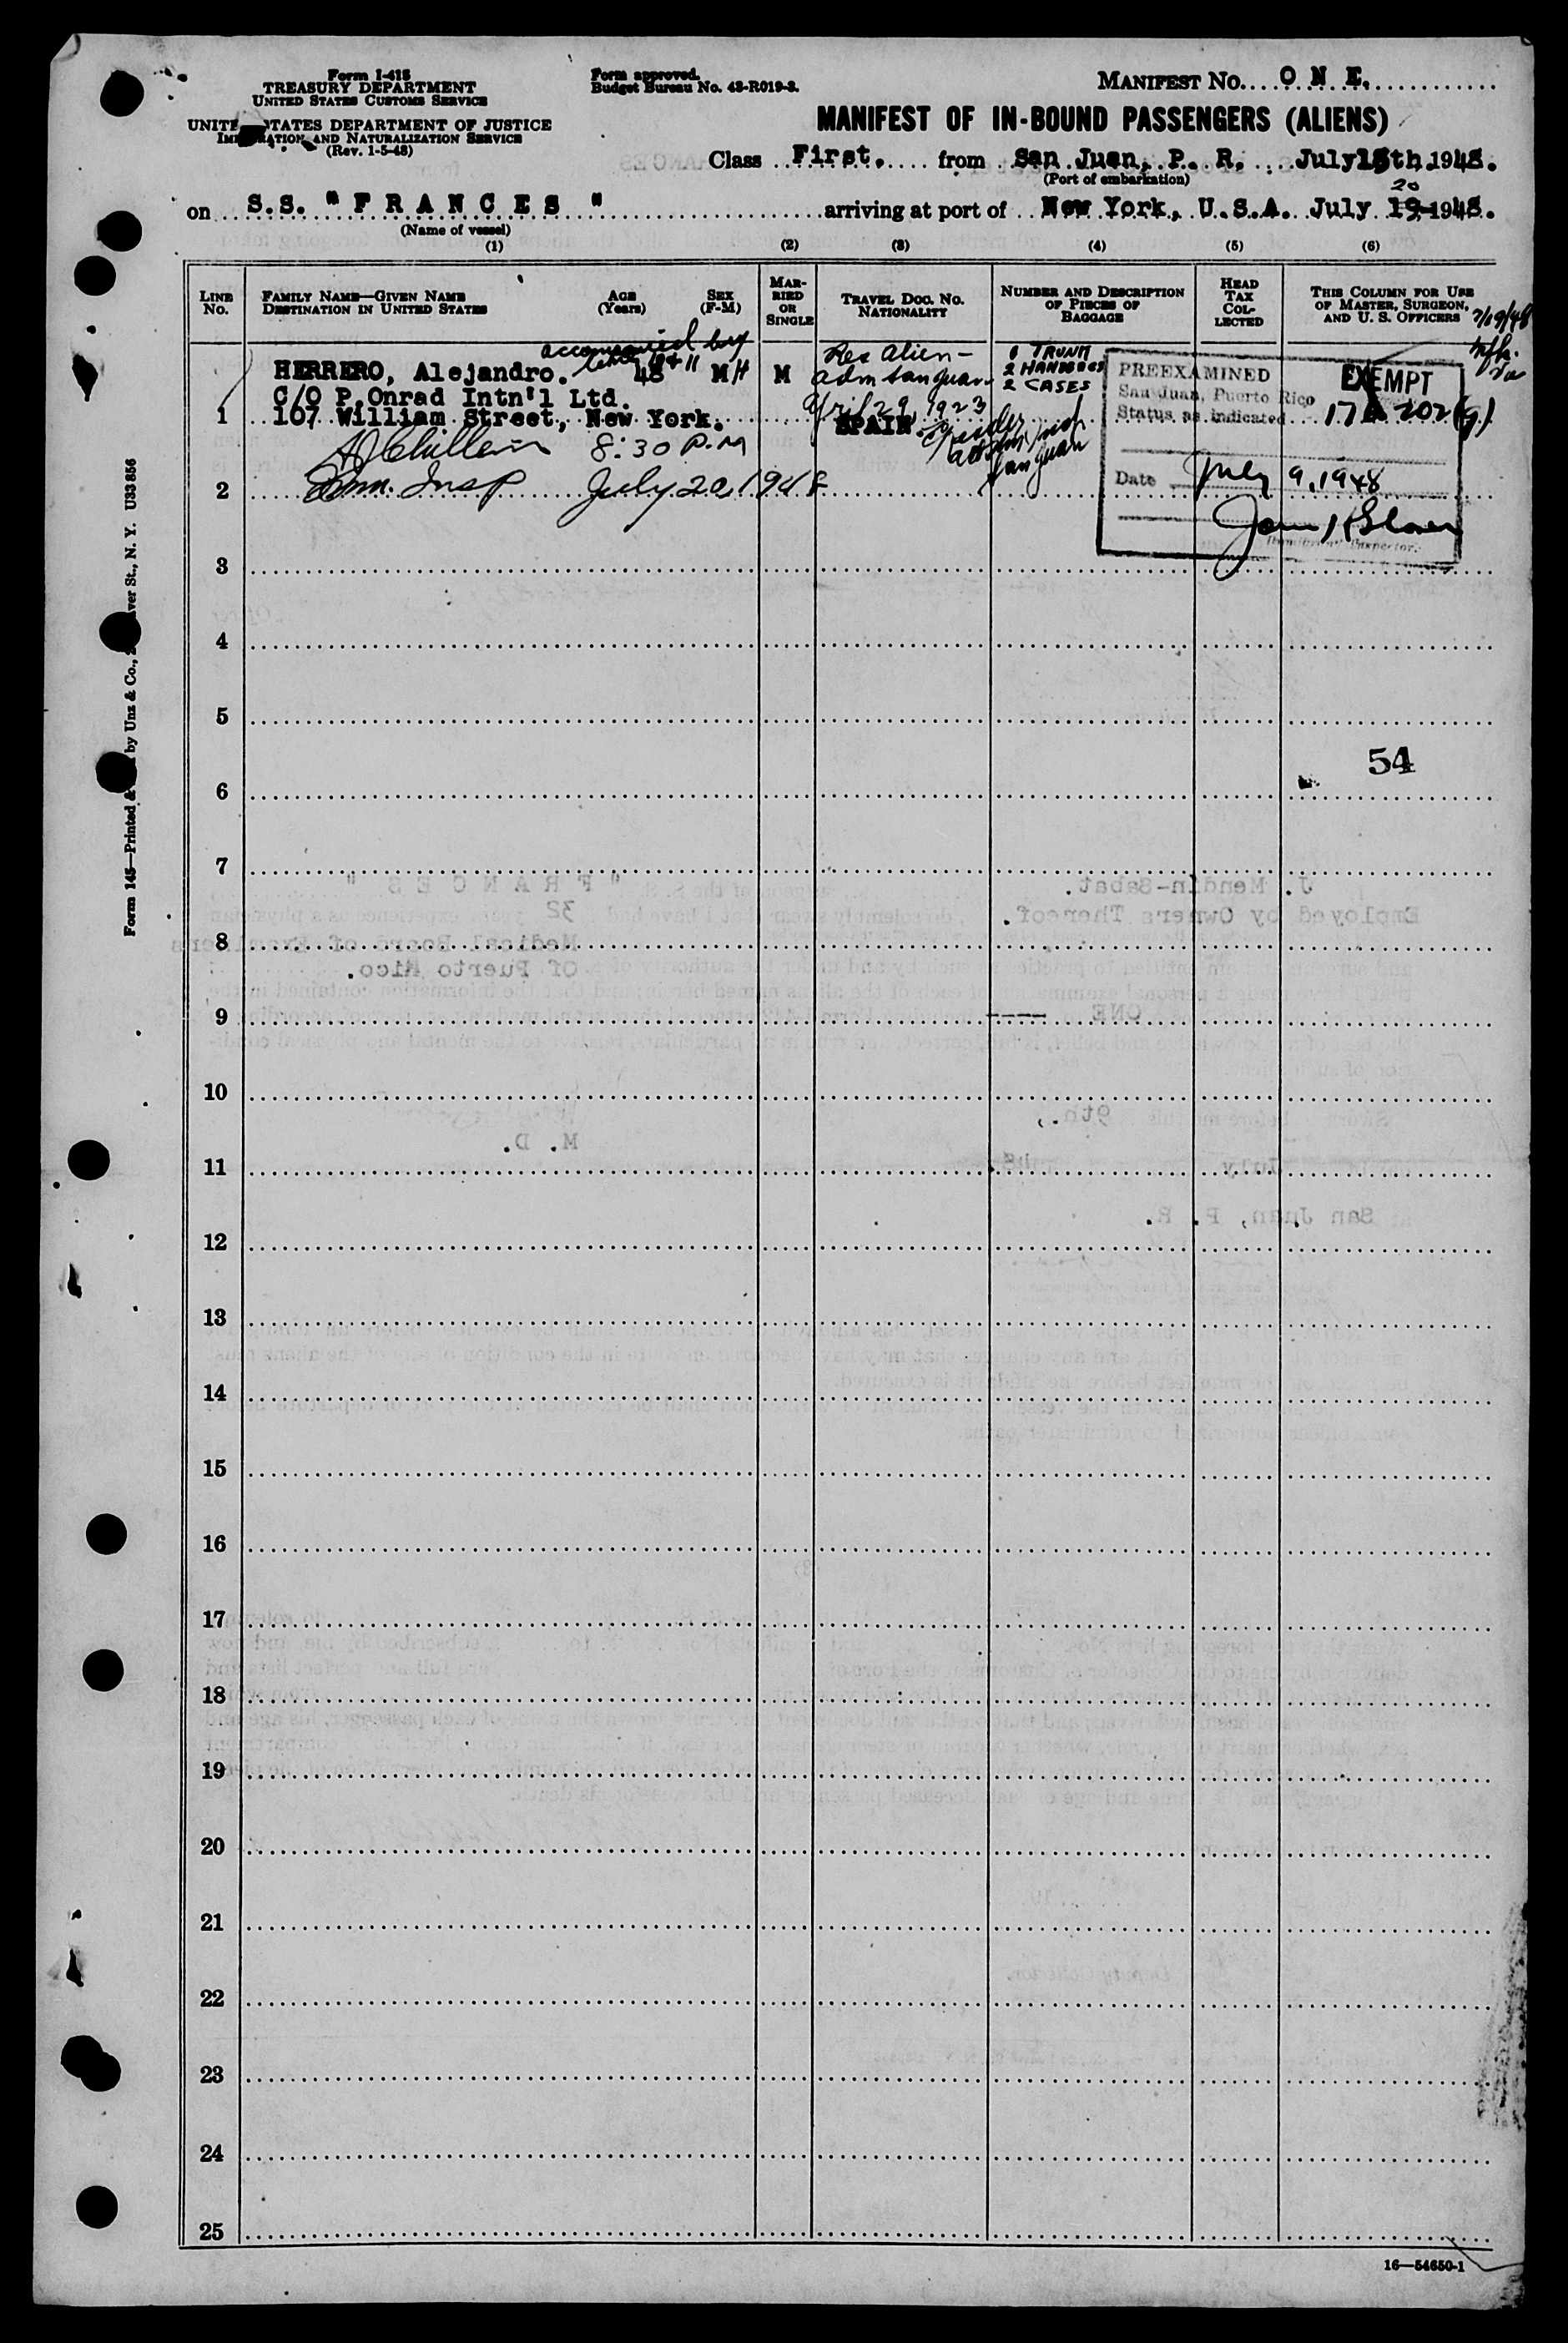 Form I-418
TREASURY DEPARTMENT
UNITED STATES CUSTOMS SERVICE
UNITED STATES DEPARTMENT OF JUSTICE
IMMIGRATION AND NATURALIZATION SERVICE
(Rev. 1-5-48)
Form approved.
Budget Bureau No. 43-R019-3.
MANIFEST NO. O N E.
MANIFEST OF IN-BOUND PASSENGERS (ALIENS)
Class First. from San Juan, P. R. July 15th 1948.
(Port of embarkation)
on S.S. "F R A N C E S " arriving at port of New York, U.S.A. July 19 20 1948.
(Name of vessel)
(1) (2) (3) (4) (5) (6)
LINE NO.
FAMILY NAME—GIVEN NAME
DESTINATION IN UNITED STATES
AGE (Years)
SEX (F-M)
MARRIED OR SINGLE
TRAVEL DOC. NO.
NATIONALITY
NUMBER AND DESCRIPTION OF PIECES OF BAGGAGE
HEAD TAX COLLECTED
THIS COLUMN FOR USE OF MASTER, SURGEON, AND U. S. OFFICERS
7/19/48
accompanied by
HERRERO, Alejandro. 48 M M
C/O P. Onrad Intn'l Ltd.
1 107 William Street, New York.
Res Alien-
adm San Juan
April 29, 1923
SPAIN.
San Juan
1 TRUNK
2 HANDBAGS
2 CASES
PREEXAMINED
San Juan, Puerto Rico
Status as indicated
Date July 9, 1948
Immigrant Inspector.
EXEMPT
8:30 P.M
2 Imm. Insp July 20, 1948
3
4
5
54
6
7
8
9
10
11
12
13
14
15
16
17
18
19
20
21
22
23
24
25
16—54650-1
Form 145—Printed & by Unz & Co., St., N. Y. U33856
J. Mendin-Sabat.
"F R A N C E S "
Employed by Owners Thereof.
32
Medical Board of Examiners
Of Puerto Rico.
ONE ----
9th.,
M. D.
July
San Juan, P. R.